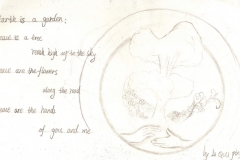 Earth is a garden:
Peace is a tree
reach high up to the sky
Peace are the flowers
along the road
Peace are the hands
of you and me
by